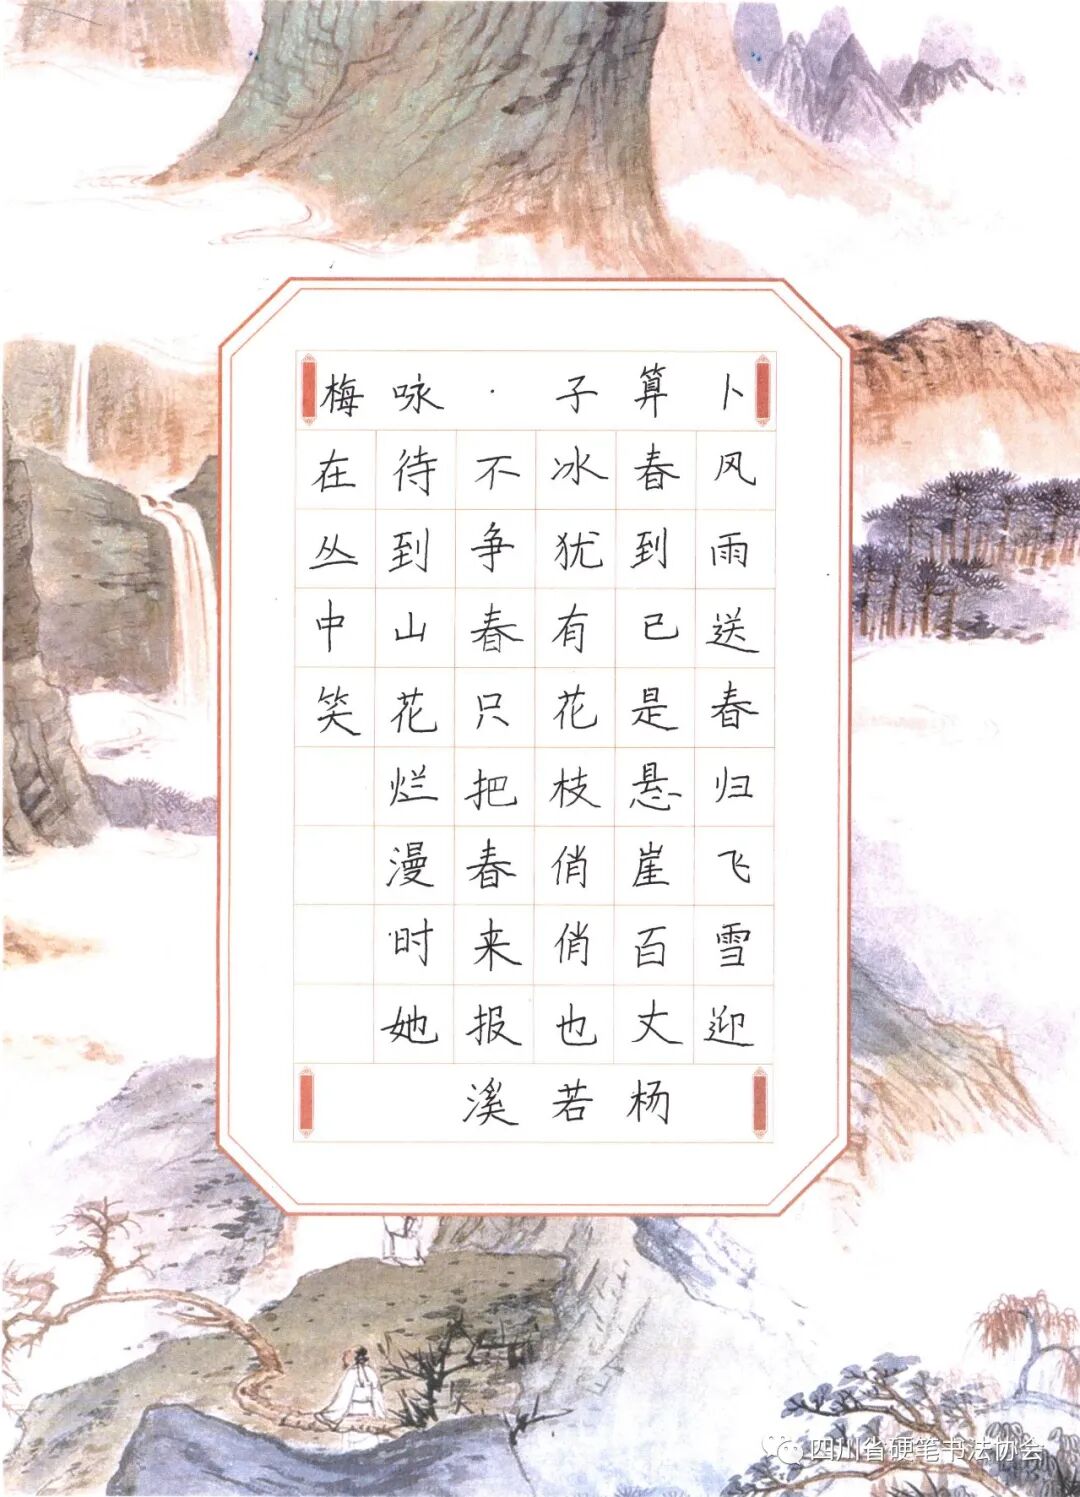 卜算子·咏梅
风雨送春归飞雪迎
春到已是悬崖百丈
冰犹有花枝俏俏也
不争春只把春来报
待到山花烂漫时她
在丛中笑
杨若溪
四川省硬笔书法协会